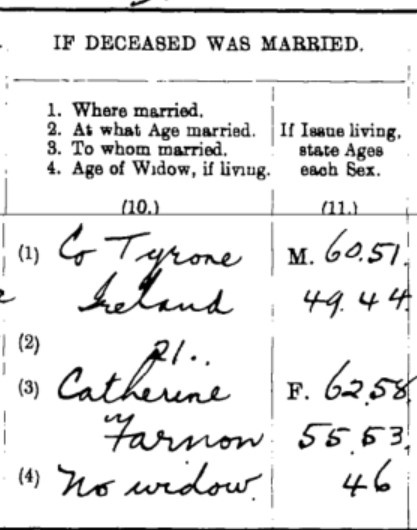 IF DECEASED WAS MARRIED.
1. Where married.
2. At what Age married.
3. To whom married.
4. Age of Widow, if living.
(10.)
If Issue living,
state Ages
each Sex.
(11.)
(1) Co Tyrone
Ireland
M. 60.51.
49.44
(2) 21..
(3) Catherine
Farnon
F. 62.58
55.53.
46
(4) No widow.